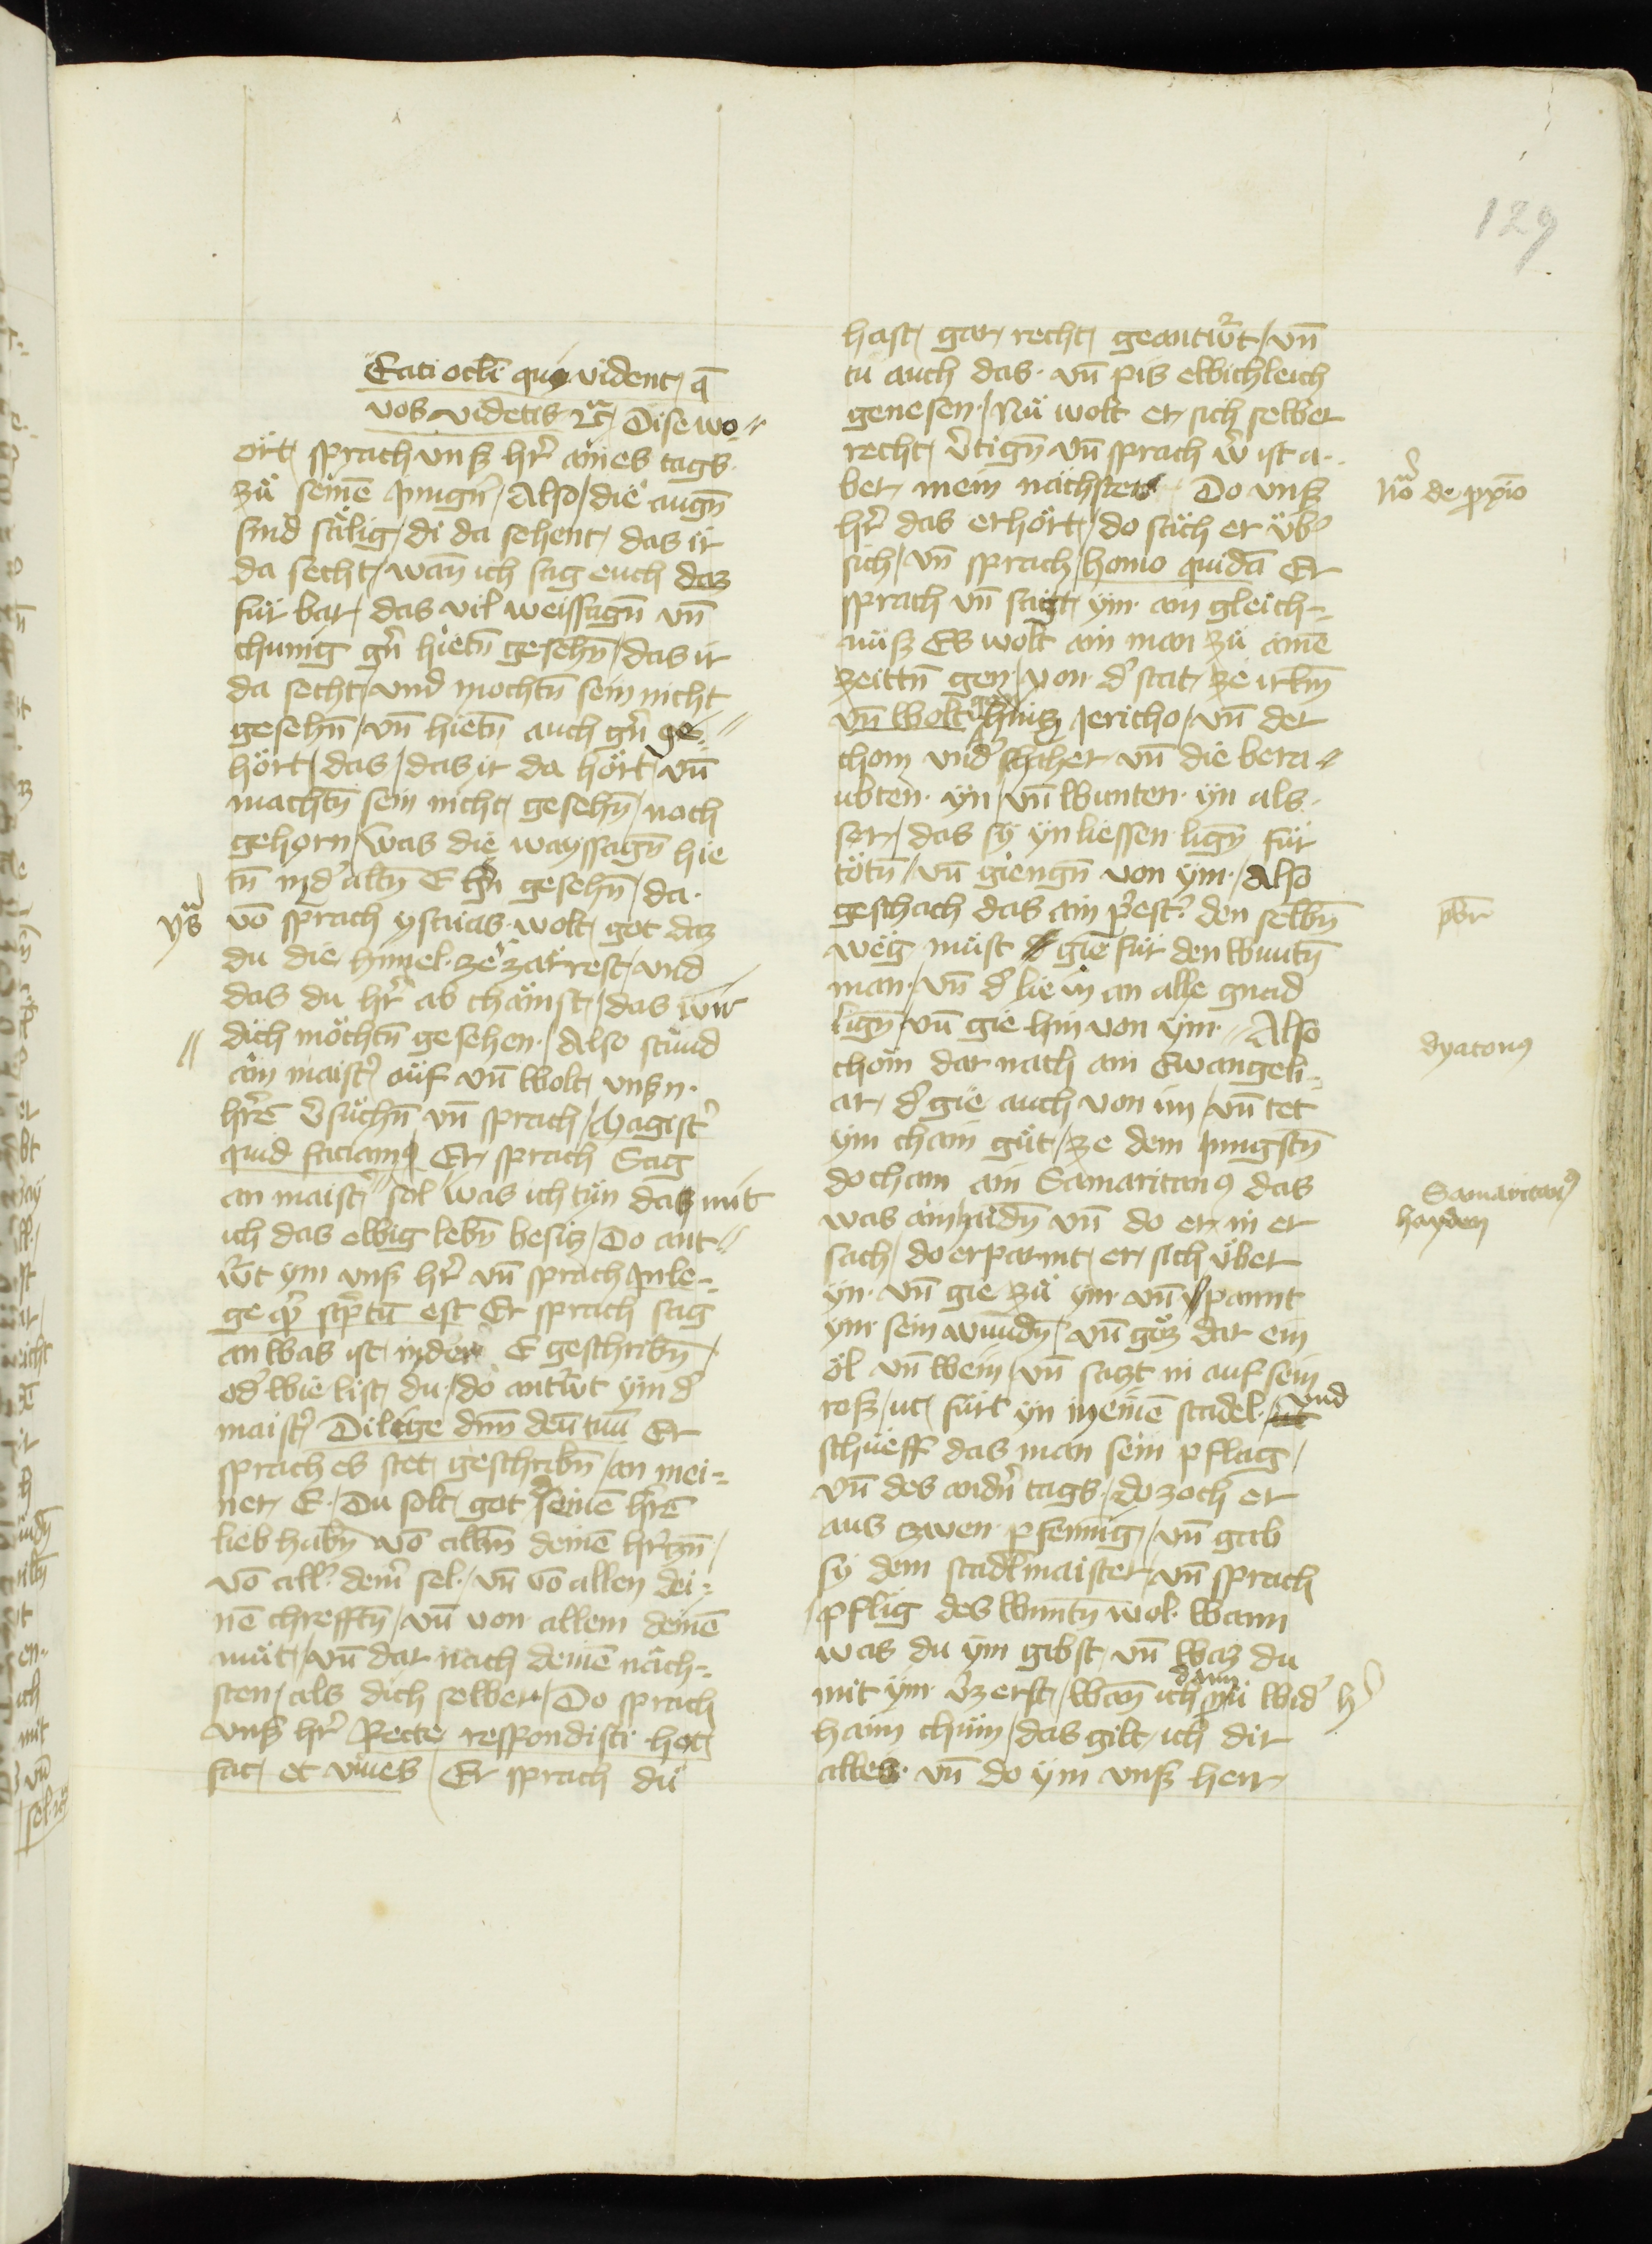 129
Eati ocli qui vident, q̄
vos videtis ⁊c̄ / Dise wo-
ort sprach vnß hr̄ aines tags
zů seinē Jungn̄ / Also / die augn̄
sind sälig / di da sehent / das ir
da secht / wan̄ ich sag euch daz
für bar / das vil weissagn̄ vn̄
chunig gn̄ hietn̄ gesehn̄ / das ir
da secht / vnd mochtn̄ sein nicht
gesehn̄ / vn̄ hietn̄ auch gn̄ ge-
hört / das / das ir da hört / vn̄
machtn̄ sein nicht gesehn̄ / noch
gehorn / was die wayssagn̄ hie
tn̄ in d' altn̄ E gesehn̄ / da
vō sprach ysaias wolt got daz
du die himel ze zärrest / vnd
das du hr̄ ab chämst / das wir
dich möchtn̄ gesehen / Also stůnd
ain maist' auf vn̄ wolt vnßn
hrē v'sůchn̄ vn̄ sprach / Magist'
quid faciam9 Er sprach Sag
an maist' sol was ich tůn das mit
ich das ewig lebn̄ besiz / Do ant-
w't ym vnß hr̄ vn̄ sprach In le-
ge q̄ sc'ptū est Er sprach sag
an was ist in der E geschribn̄ /
od' wie list du / do antw't ym d'
maist' Dilige dnm̄ deū tuū Er
sprach es stet geschribn̄ / an mei-
ner E / Du solt got deinē hrē
lieb habn̄ vō allm̄ deinē hr̄czn̄ /
vō all' dein' sel / vn̄ vō allen dei-
nē chrefftn̄ / vn̄ von allem deinē
můt / vn̄ dar nach deinē näch-
sten / als dich selber / Do sprach
vnß hr̄ Recte respondisti hoc
fac et viues / Er sprach du
ys̄
hast gar recht geantw't / vn̄
tů auch das vn̄ pis ewichleich
genesen / Nů wolt er sich selber
recht v'tign̄ vn̄ sprach w' ist a-
ber mein nächster Do vnß
hr̄ das erhört / do säch er üb'
sich / vn̄ sprach / homo quidā Er
sprach vn̄ sagt ym ain gleich-
nuß Es wolt ain man zů ainē
zeittn̄ gen / von d' stat ze irlm̄
vn̄ wolt hincz Jericho / vn̄ der
chom vnd' schaher vn̄ die bera-
ubten yn / vn̄ wunten yn als
ser / das sy yn liessen lign̄ für
tötn̄ / vn̄ giengn̄ von ym / Also
geschach das ain p'est' den selbn̄
weg můst gie für den wuntn̄
man / vn̄ d' lie in an alle gnad
lign̄ / vn̄ gie hin von ym / Also
chom dar nach ain Ewangeli-
ar / d' gie auch von im / vn̄ tet
ym chain gůt / ze dem Jungstn̄
do cham ain Samaritan9 das
was ain vn̄ do er in er
sach / do erparmt er sich über
yn vn̄ gie zů ym vn̄ pannt
ym sein wundn̄ / vn̄ göz dar ein
öl vn̄ wein / vn̄ sazt in auf sein
roß / fürt yn in einē stadel / vnd
schueff das man sein pflag /
vn̄ des andn̄ tags / do zoch er
aus zwen pfennig / vn̄ gab
sy dem stadlmaister / vn̄ sprach
pflig des wuntn̄ wol wann
was du ym gibst vn̄ waz du
mit ym v'zerst / wan̄ ich dann nů wid' h'
haim chüm / das gilt ich dir
alles vn̄ do ym vnß herr
nō de px̄io
pb̄r
dyacon9
Samaritan9
hayden